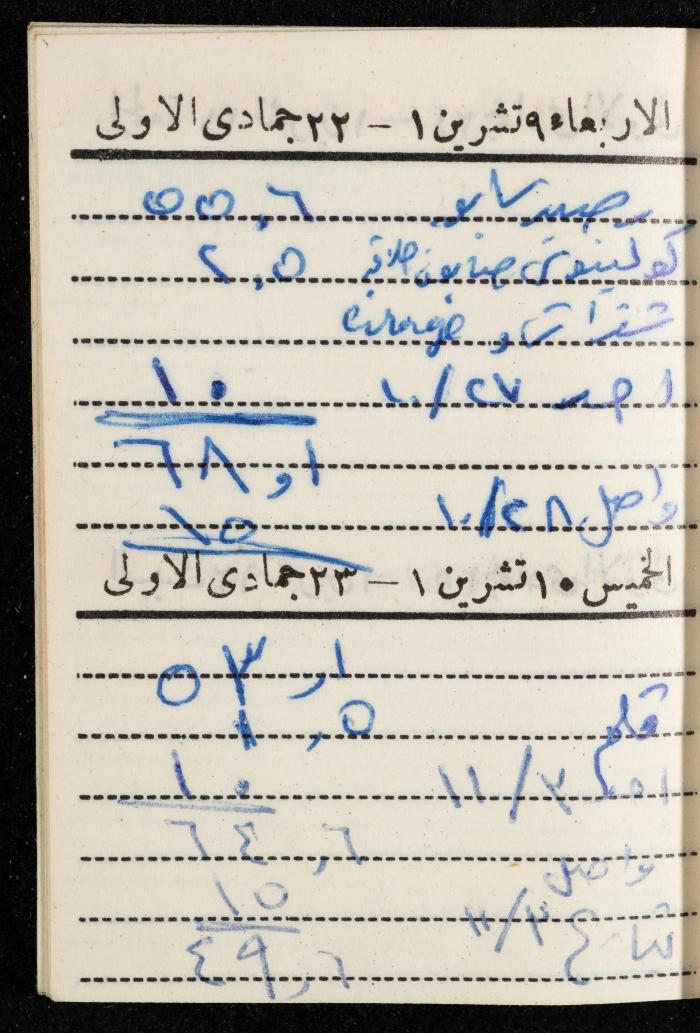 الاربعاء ٩ تشرين ١ – ٢٢ جمادى الاولى
رصيد سابق ٥٥,٦
كولينوس صابون حلاقة ٢,٥
و cirage
احمد ١٠/٢٧ ١٠
٦٨,١
واصل ١٠/٢٨ ١٥
الخميس ١٠ تشرين ١ – ٢٣ جمادى الاولى
٥٣,١
قلم ١,٥
احمد ١١/٢ ١٠
٦٤,٦
واصل
١١/٣ ١٥
٤٩,٦